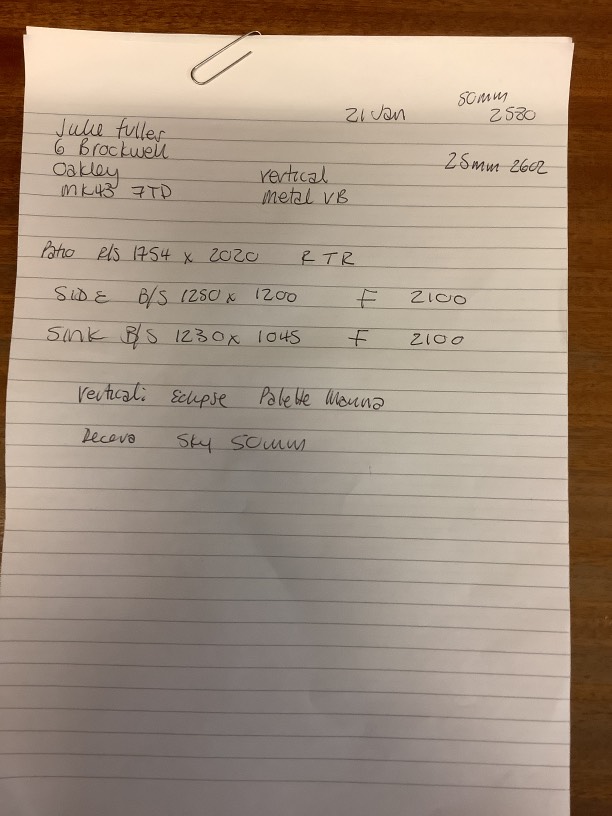 21 Jan
50mm
2580
Julie Fuller
6 Brockwell
Oakley
MK43 7TD
vertical
metal VB
25mm 2602
Patio R/S 1754 x 2020 R TR
SIDE B/S 1250 x 1200 F 2100
SINK B/S 1230 x 1045 F 2100
Vertical: Eclipse Palette
Sky 50mm